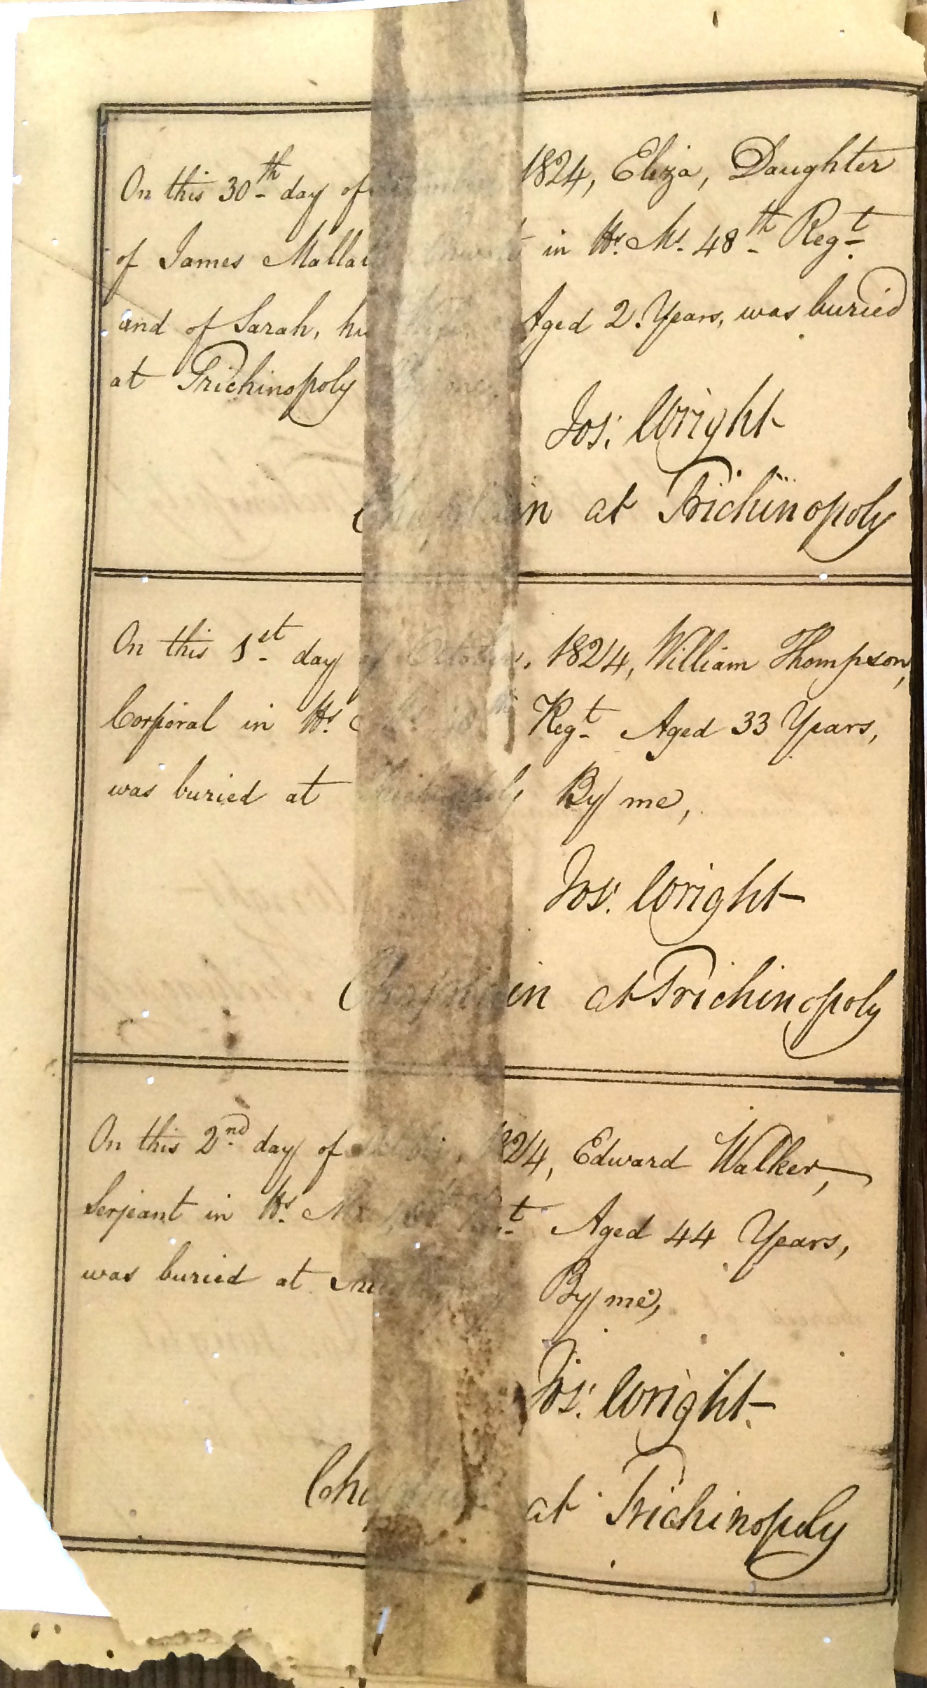 On this 30th day of 1824, Eliza, Daughter
of James in Hs. Ms. 48th Regt
and of Sarah, Aged 2 Years, was buried
at Trichinopoly
Jos. Wright
Chaplain at Trichinopoly
On this 1st day of October, 1824, William Thompson,
Corporal in Hs. Regt Aged 33 Years,
was buried at Trichinopoly By me,
Jos. Wright
Chaplain at Trichinopoly
On this 2nd day of 1824, Edward Walker,
Serjeant in Hs. Aged 44 Years,
was buried at By me,
Jos. Wright
Chaplain at Trichinopoly